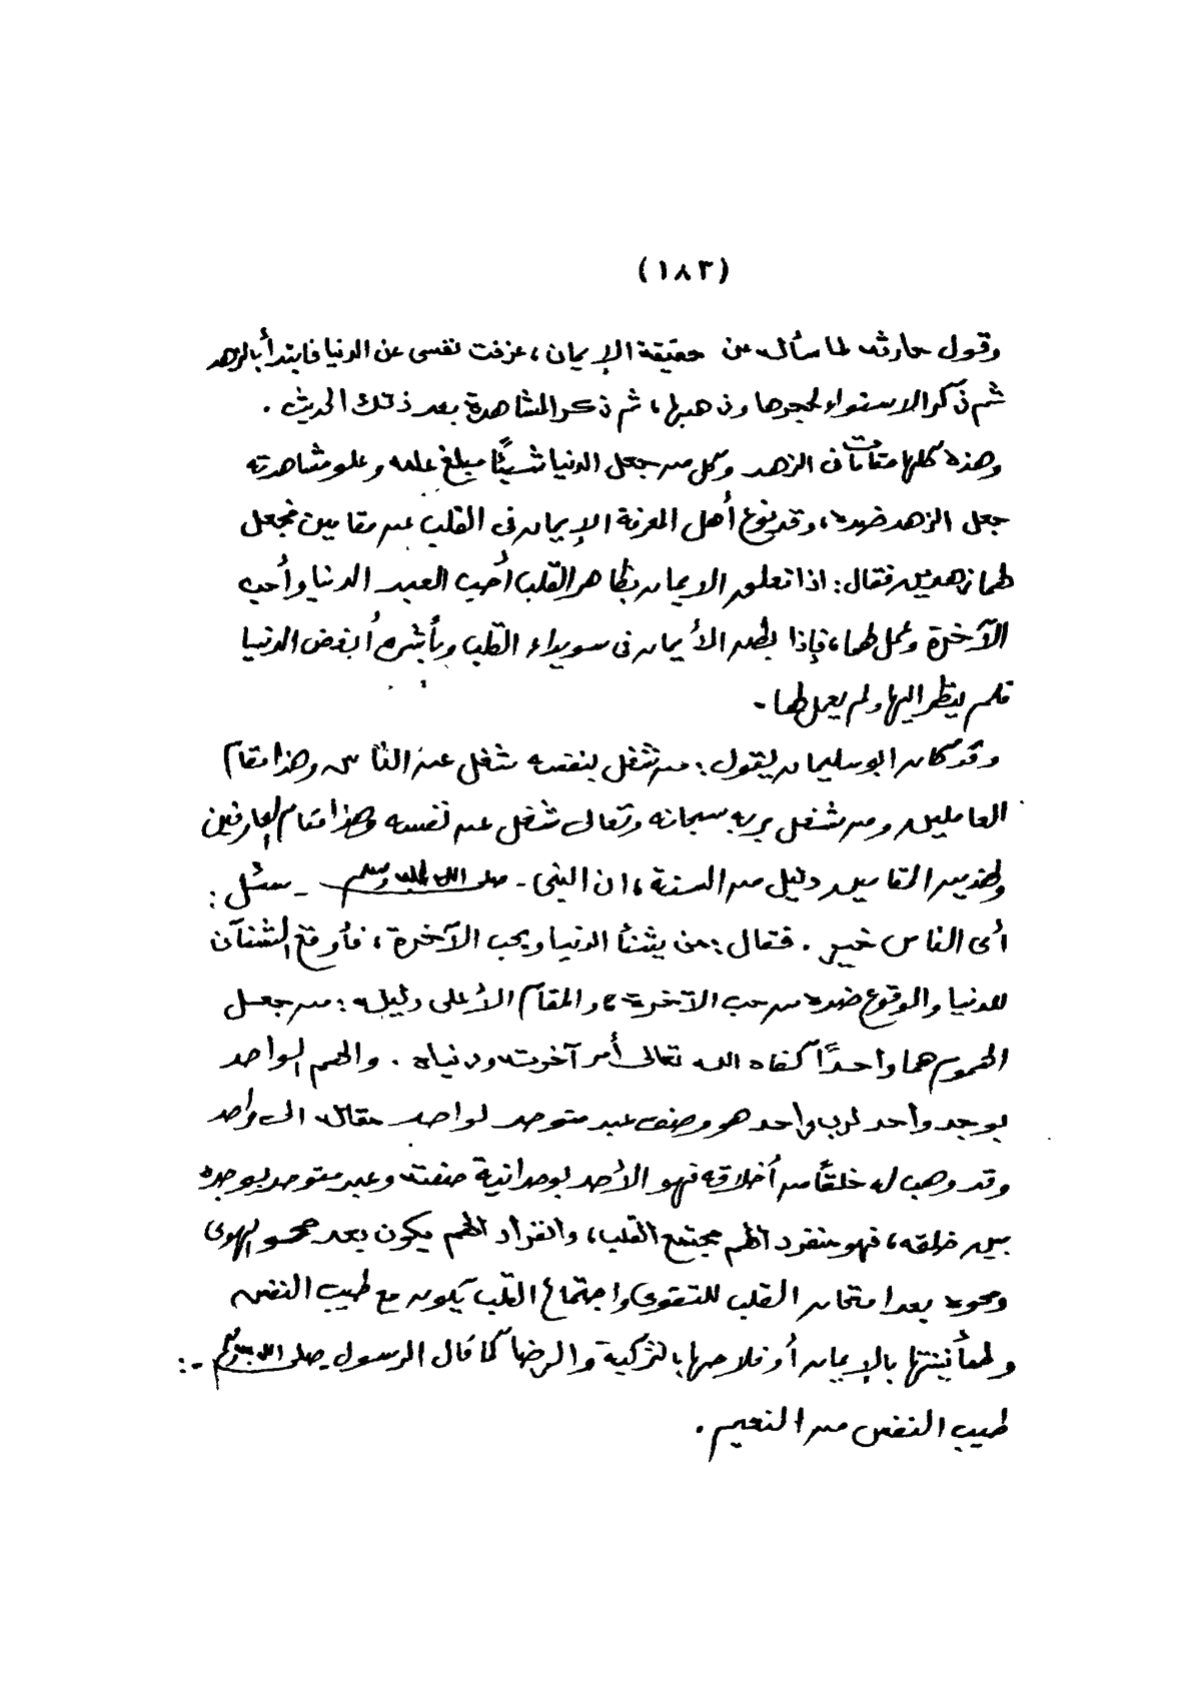 (١٨٣)
وقول حارثه لما سأله عن حقيقة الإيمان، عزفت نفسى عن الدنيا فابتدأ بالزهد
ثم ذكر الاستواء لحجرها وذهبها، ثم ذكر المشاهدة بعد ذلك الحديث .
وهذه كلها مقامات فى الزهد وكل من جعل الدنيا شيئًا مبلغ علمه وعلو مشاهدته
جعل الزهد ضده، وقد نوع أهل المعرفة الإيمان فى القلب عن مقامين فجعل
لهما زهدين فقال: اذا تعلق الايمان بظاهر القلب أحب العبد الدنيا وأحب
الآخرة وعمل لهما، فإذا بطن الأيمان فى سويداء القلب وباشره أبغض الدنيا
فلم ينظر اليها ولم يعمل لها -
وقد كان ابو سليمان يقول: من شغل بنفسه شغل عن الناس وهذا مقام
العاملين ومن شغل بربه سبحانه وتعالى شغل عن نفسه وهذا مقام العارفين
ولهذين المقامين دليل من السنة، ان النبى - صلى الله عليه وسلم - سئل :
أى الناس خير . فقال: من يشنأ الدنيا ويحب الآخرة، فأوقع الشنآن
للدنيا والوقوع ضده من حب الآخرة، والمقام الأعلى دليله: من جعل
الهموم هما واحدًا كفاه الله تعالى أمر آخرته ودنياه . والهم الواحد
يوجد واحد لرب واحد هو وصف عبد متوحد لواحد الى واحد
وقد وهب له خلقًا من أخلاقه فهو الأحد بوحدانية صفته وعبد متوحد بوجده
بين خلقه، فهو منفرد الهم مجتمع القلب، وانفراد الهم يكون بعد محو الهوى
ومحوه بعد امتحان القلب للتقوى واجتماع القلب يكون مع طيب النفس
وطمأنينتها بالإيمان أو فلاحها بالتزكية والرضا كما قال الرسول - صلى الله عليه وسلم - :
طيب النفس من النعيم .